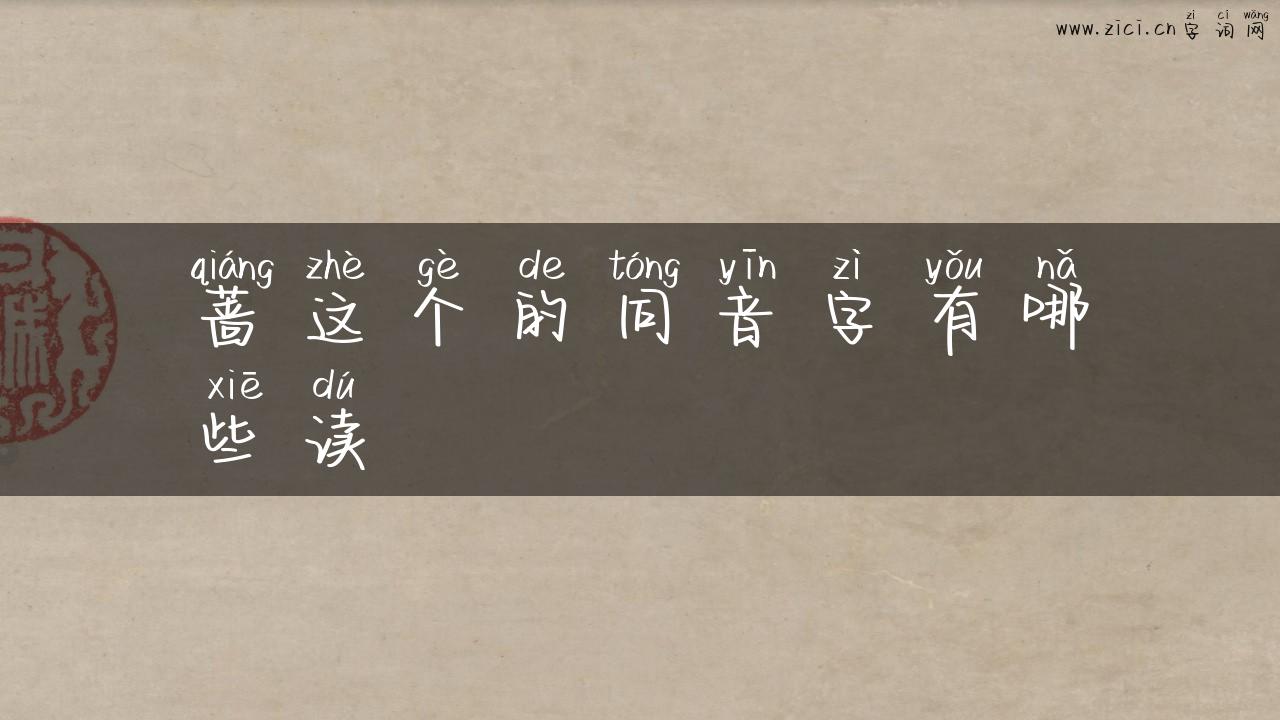 zì cí wǎng
www.zici.cn字词网
qiáng zhè gè de tóng yīn zì yǒu nǎ
蔷这个的同音字有哪
xiē dú
些读